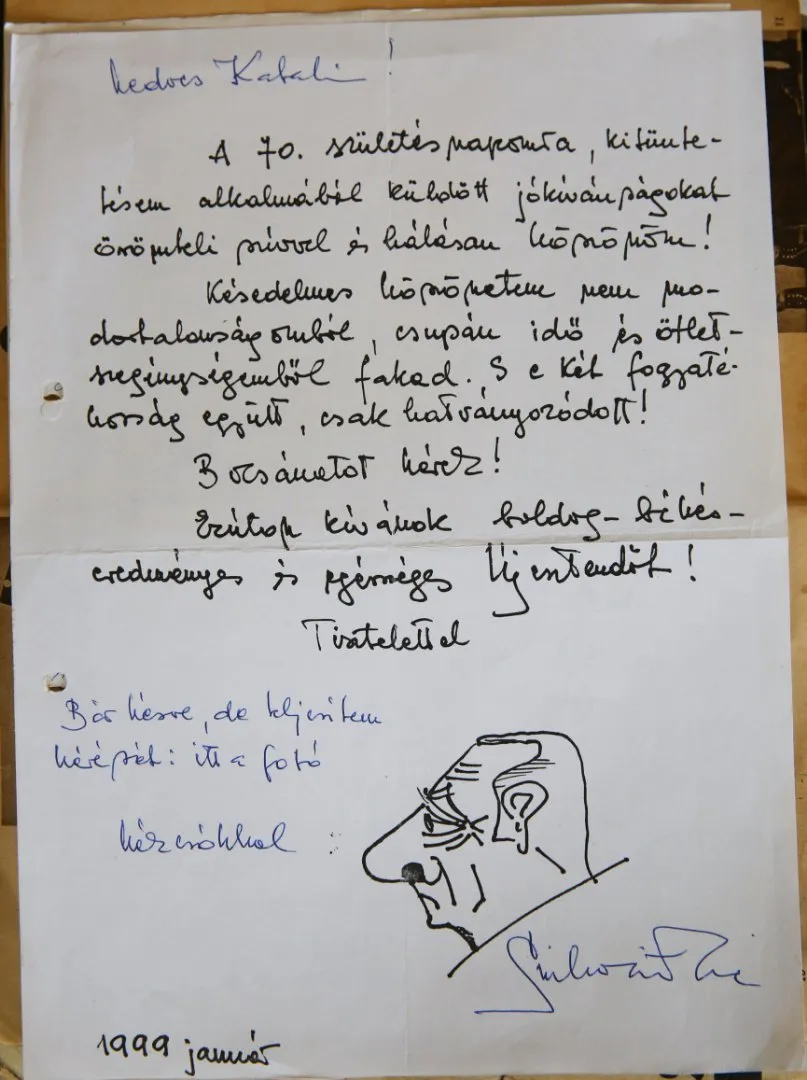 kedves Katalin!
A 70. születésnapomra, kitünte-
tésem alkalmából küldött jókívánságokat
örömteli szívvel és hálásan köszönöm!
Késedelmes köszönetem nem mo-
dortalanságomból, csupán idő és ötlet-
szegénységemből fakad. S e két fogyaté-
kosság együtt, csak hatványozódott!
Bocsánatot kérek!
Ezúton kívánok boldog- békés-
eredményes és egészséges Új esztendőt!
Tisztelettel
Bár késve, de teljesítem
kérését: itt a fotó
kézcsókkal
Sinkovits Imre
1999 január